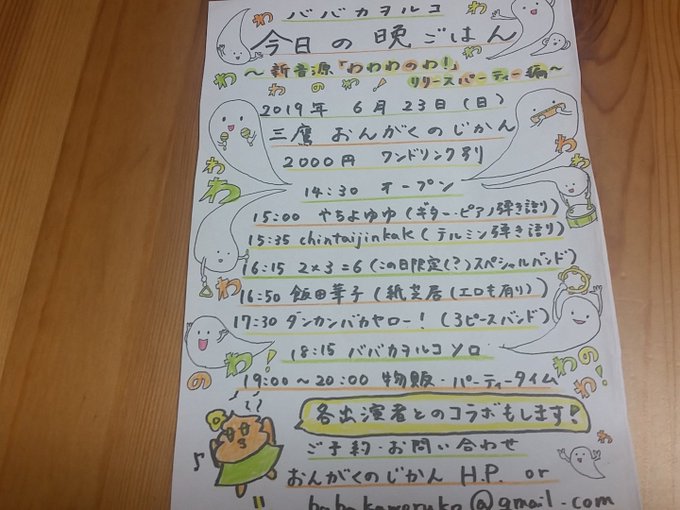 ババカヲルコ
今日の晩ごはん
～新音源「わわわのわ!」
リリースパーティー編～
2019年 6月23日(日)
三鷹 おんがくのじかん
2000円 ワンドリンク別
14:30 オープン
15:00 やちよゆゆ(ギター・ピアノ弾き語り)
15:35 chintaijinkak(テルミン弾き語り)
16:15 2×3=6(この日限定(?)スペシャルバンド)
16:50 飯田華子(紙芝居(エロも有り))
17:30 ダンカンバカヤロー!(3ピースバンド)
18:15 ババカヲルコソロ
19:00～20:00 物販・パーティータイム
各出演者とのコラボもします!
ご予約・お問い合わせ
おんがくのじかん H.P. or
babakaworuko@gmail.com
わ
わ
わ
わ
の
わ
!
わ
わ
わ
わ
の
わ!
わ
わ
わ
の
!